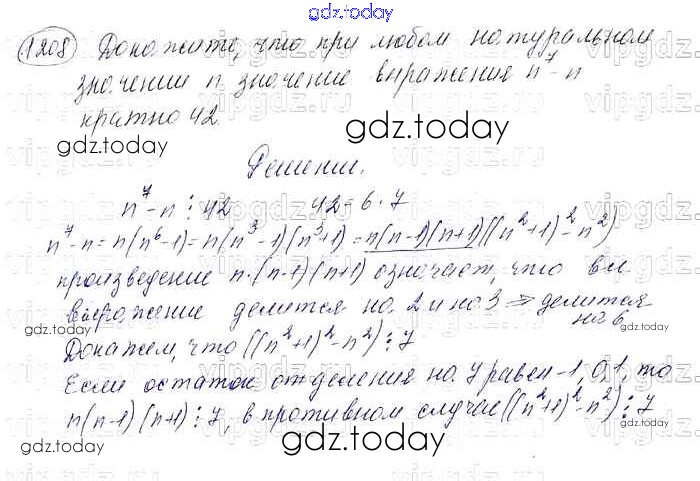 gdz.today
1208 Докажите, что при любом натуральном
значении n значение выражения n⁷-n
кратно 42.
gdz.today
gdz.today
Решение.
n⁷-n ⋮ 42     42=6·7
n⁷-n=n(n⁶-1)=n(n³-1)(n³+1)=n(n-1)(n+1)((n²+1)²-n²)
произведение n·(n-1)(n+1) означает, что вы
выражение делится на 2 и на 3 ⇒ делится
на 6
gdz.today
gdz.today
Докажем, что ((n²+1)²-n²) ⋮ 7
Если остаток от деления на 7 равен -1, 0, 1, то
n(n-1)(n+1) ⋮ 7, в противном случае ((n²+1)²-n²) ⋮ 7
gdz.today
gdz.today
gdz.today